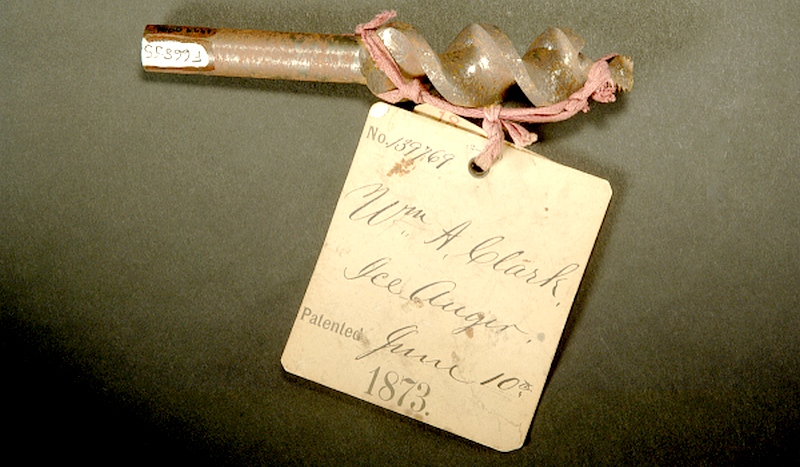 F66855
18
No. 139769
Wm A. Clark,
Ice Auger.
Patented June 10th
1873.